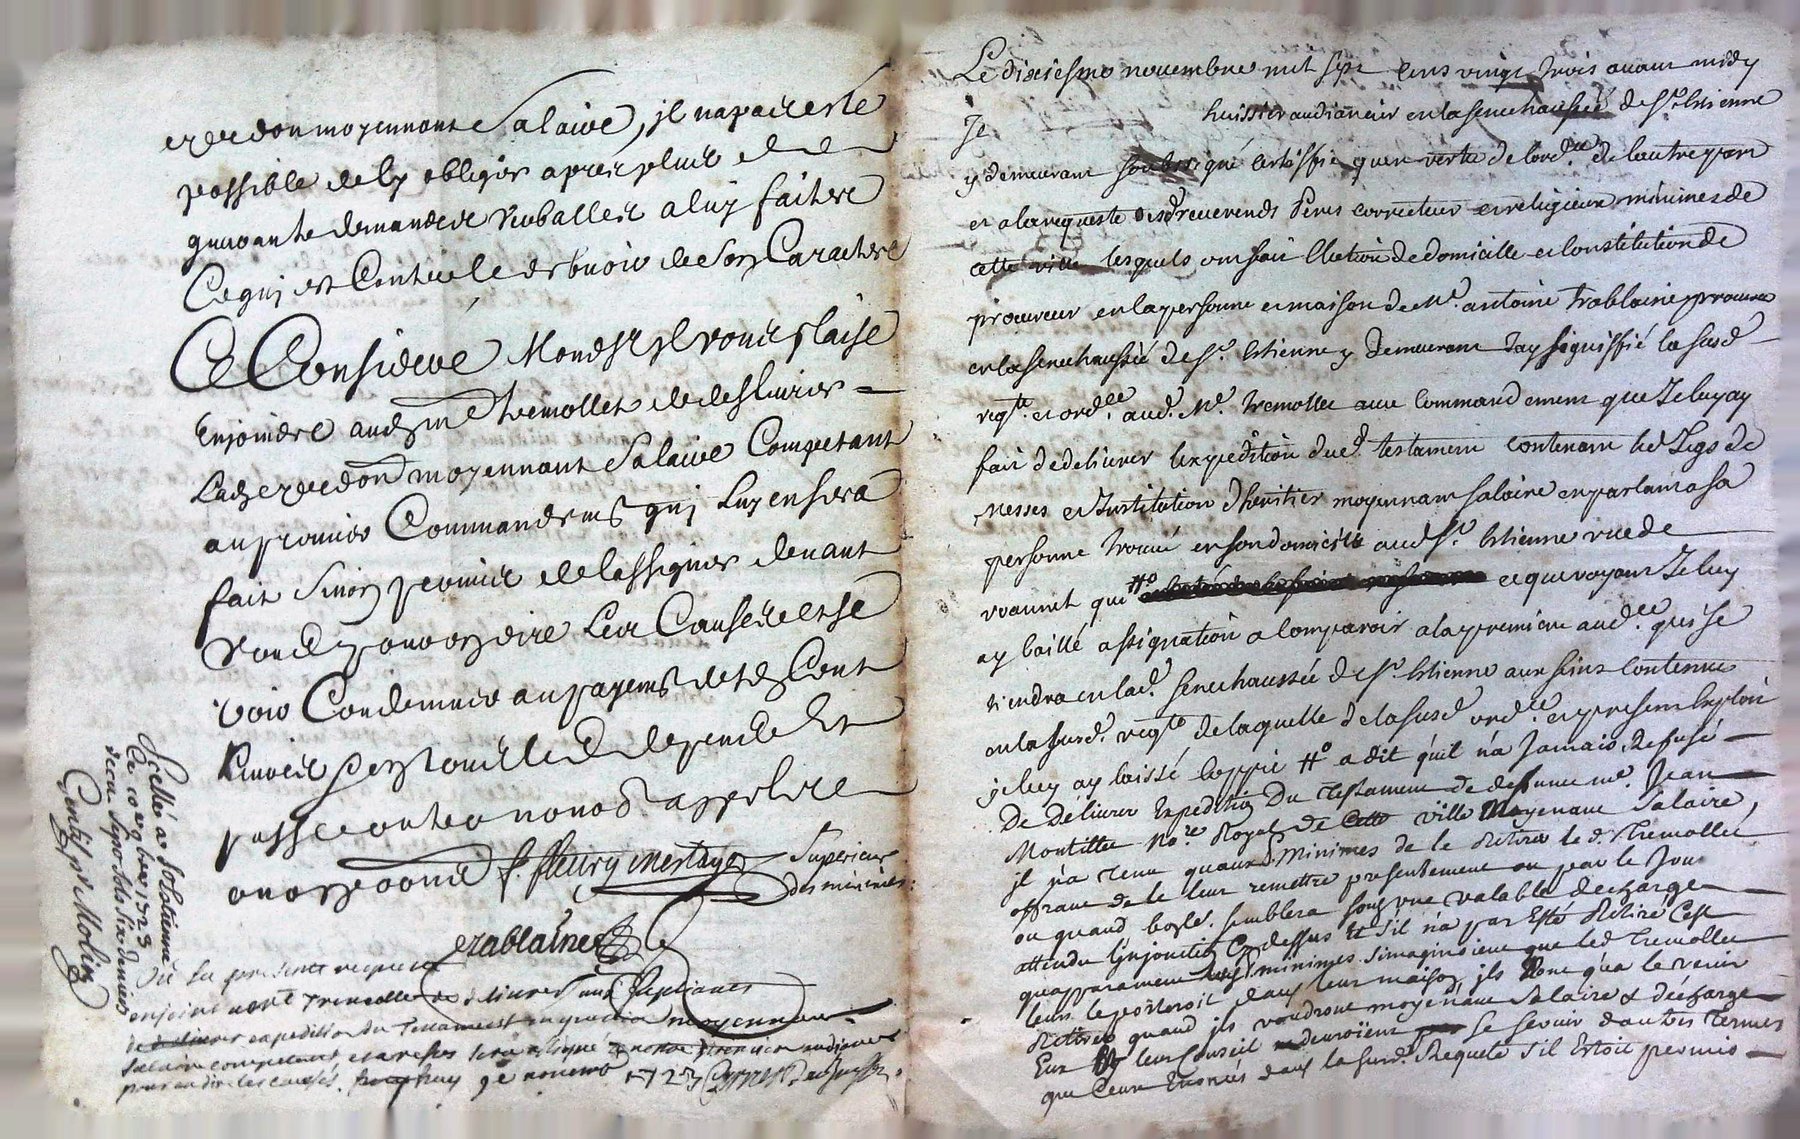 expedon moyennant Salaire, il n'a pas esté
possible de ly obliger apres plusieurs
quarante demandes verballes a luy faites
Ce qui est Contre le debvoir de Son Caractere
Ce Consideré Mondsr il vous plaise
Enjoindre aud. me tremollet de deslivrer
Lad. expedon moyennant Salaire Competant
au premier Commandemt qui Luy en sera
fait Sinon permis de lassigner devant
vous pour en dire Les Causes et se
voir Condemner au payemt de Cent
Livres
passe outre nonobt appel et
aves f. fleury mestayer Superieur
des minimes
trablaine
Veu la presente requeste
enjoint a me Tremollet de delivrer aux Suplians
expedition du Testament en question moyennant
Salaire competant
pour en dire les causes. ce 9e novemb 1723
Scellé a St Estienne
Ce 10 9bre 1723
Gentil pr Molin
Le dixiesme novembre mil sept cens vingt trois avant midy
Je huissier audiancier en la senechaussée de St. Estienne
y demeurant soubssigné certiffie qu'en vertu de lord.ce de lautre part
et a la requeste desd reverends Peres correcteur et religieux minimes de
cette ville lesquels ont fait Election de domicille et Constitution de
procureur en la personne et maison de Me. antoine Trablaine procureur
en la senechaussée de St. Estienne y demeurant Jay signiffié la susd
reqte. et ord.ce aud. Me. tremollet avec Commandement que Je luy ay
fait de delivrer lexpedition dud. testament contenant led Legs de
Messes et Institution d'heritier moyennant salaire en parlant a sa
personne trouvé en son domicile aud St. Estienne rue de
roannet qui # et que voyant Je luy
ay baillé assignation a comparoir a la premiere aud.ce qui se
tiendra en lad. senechaussée de St. Estienne aux fins contenues
en la susd. reqte de laquelle de la susd ord.ce et present Exploit
je luy ay laissé coppie # a dit quil n'a Jamais Refusé
De Délivrer Expedition Du Testament de deffunt me. Jean
Montillet No.re Royal de Cette ville Moyenant Salaire,
il n'a tenu quauxd Minimes de le Retirer led. Tremollet
offrant de le leur remettre presentement ou par le Jour
ou quand bon semblera sous une valable décharge
attendu l'injonction Cy dessus Et s'il n'a pas Esté Retiré C'est
qu'apparament lesd. minimes s'imaginoient que led Tremollet
leur le porteroit dans leur maison, ils n'ont qu'a le venir
Retirer quand ils voudront moyenant Salaire & décharge
Eux leur Conseil devroient Se Servir dautres termes
que Ceux Enoncés dans la susd. Requete s'il Estoit permis